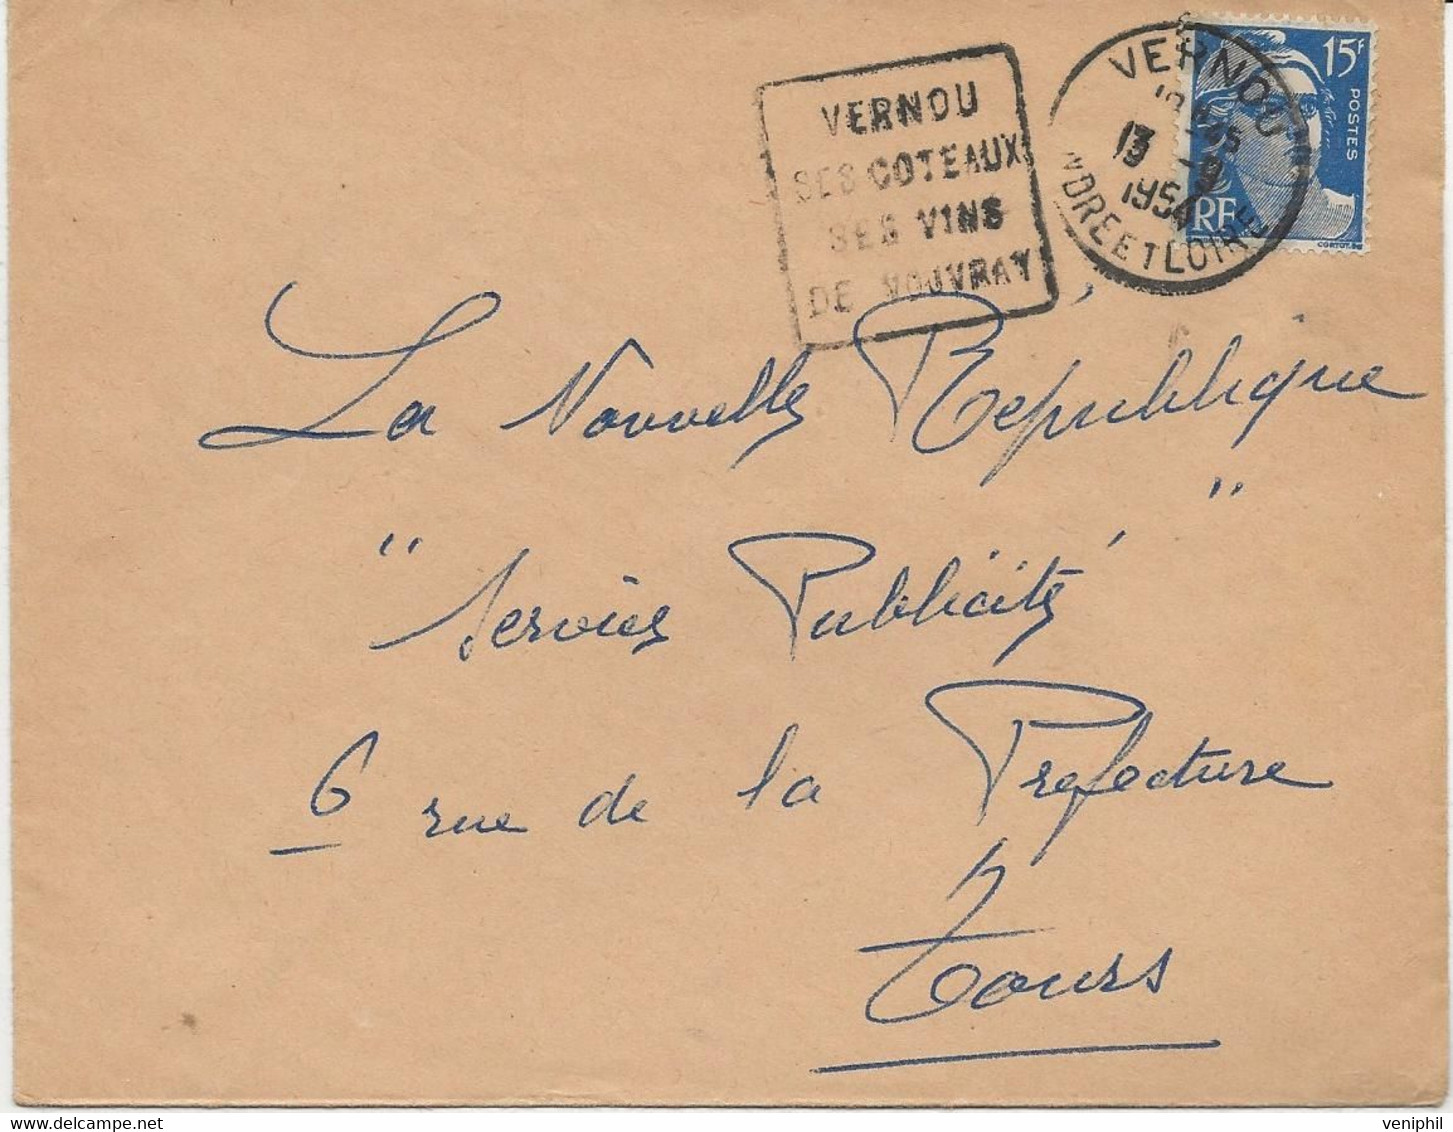 VERNOU
SES COTEAUX
SES VINS
DE VOUVRAY
VERNOU
13 -9
1954
INDRE ET LOIRE
15F
POSTES
RF
La Nouvelle République
"Service Publicité"
6 rue de la Prefecture
Tours
veniphil